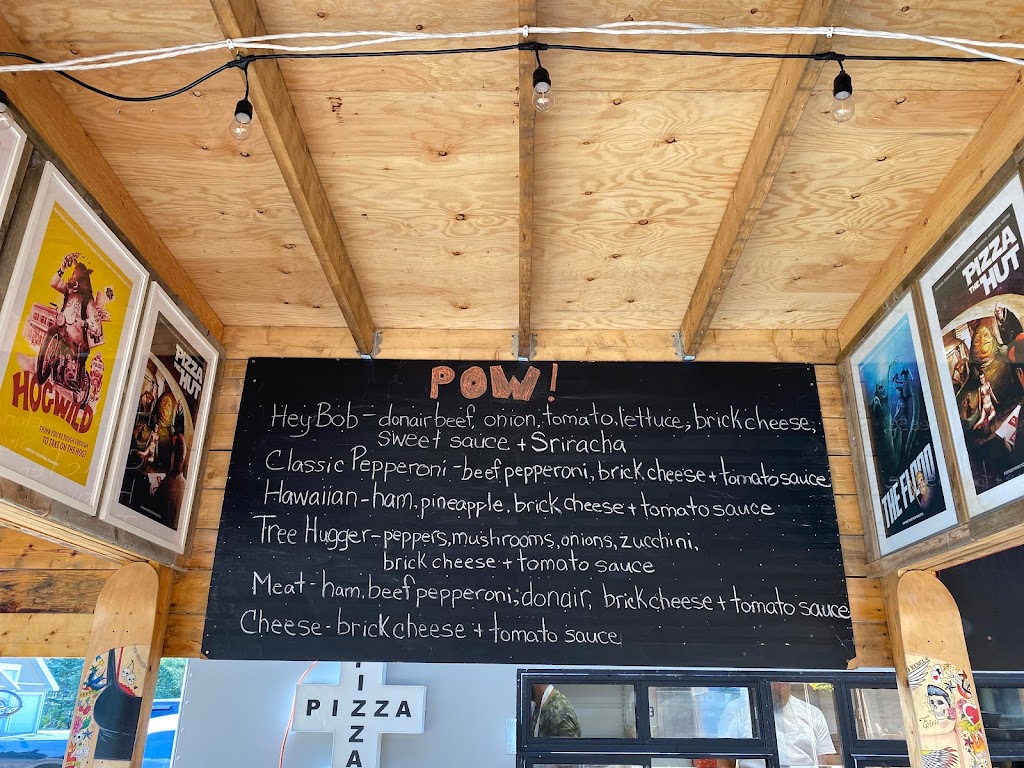 POW!
Hey Bob - donair beef, onion, tomato, lettuce, brick cheese,
sweet sauce + Sriracha
Classic Pepperoni - beef pepperoni, brick cheese + tomato sauce
Hawaiian - ham, pineapple, brick cheese + tomato sauce
Tree Hugger - peppers, mushrooms, onions, zucchini,
brick cheese + tomato sauce
Meat - ham, beef pepperoni, donair, brick cheese + tomato sauce
Cheese - brick cheese + tomato sauce
HOGWILD
THINK YOU'RE TOUGH ENOUGH
TO TAKE ON THE HOG?
PIZZA
THE HUT
THE FLOOD
PIZZA
THE HUT
PIZZA
IZZA